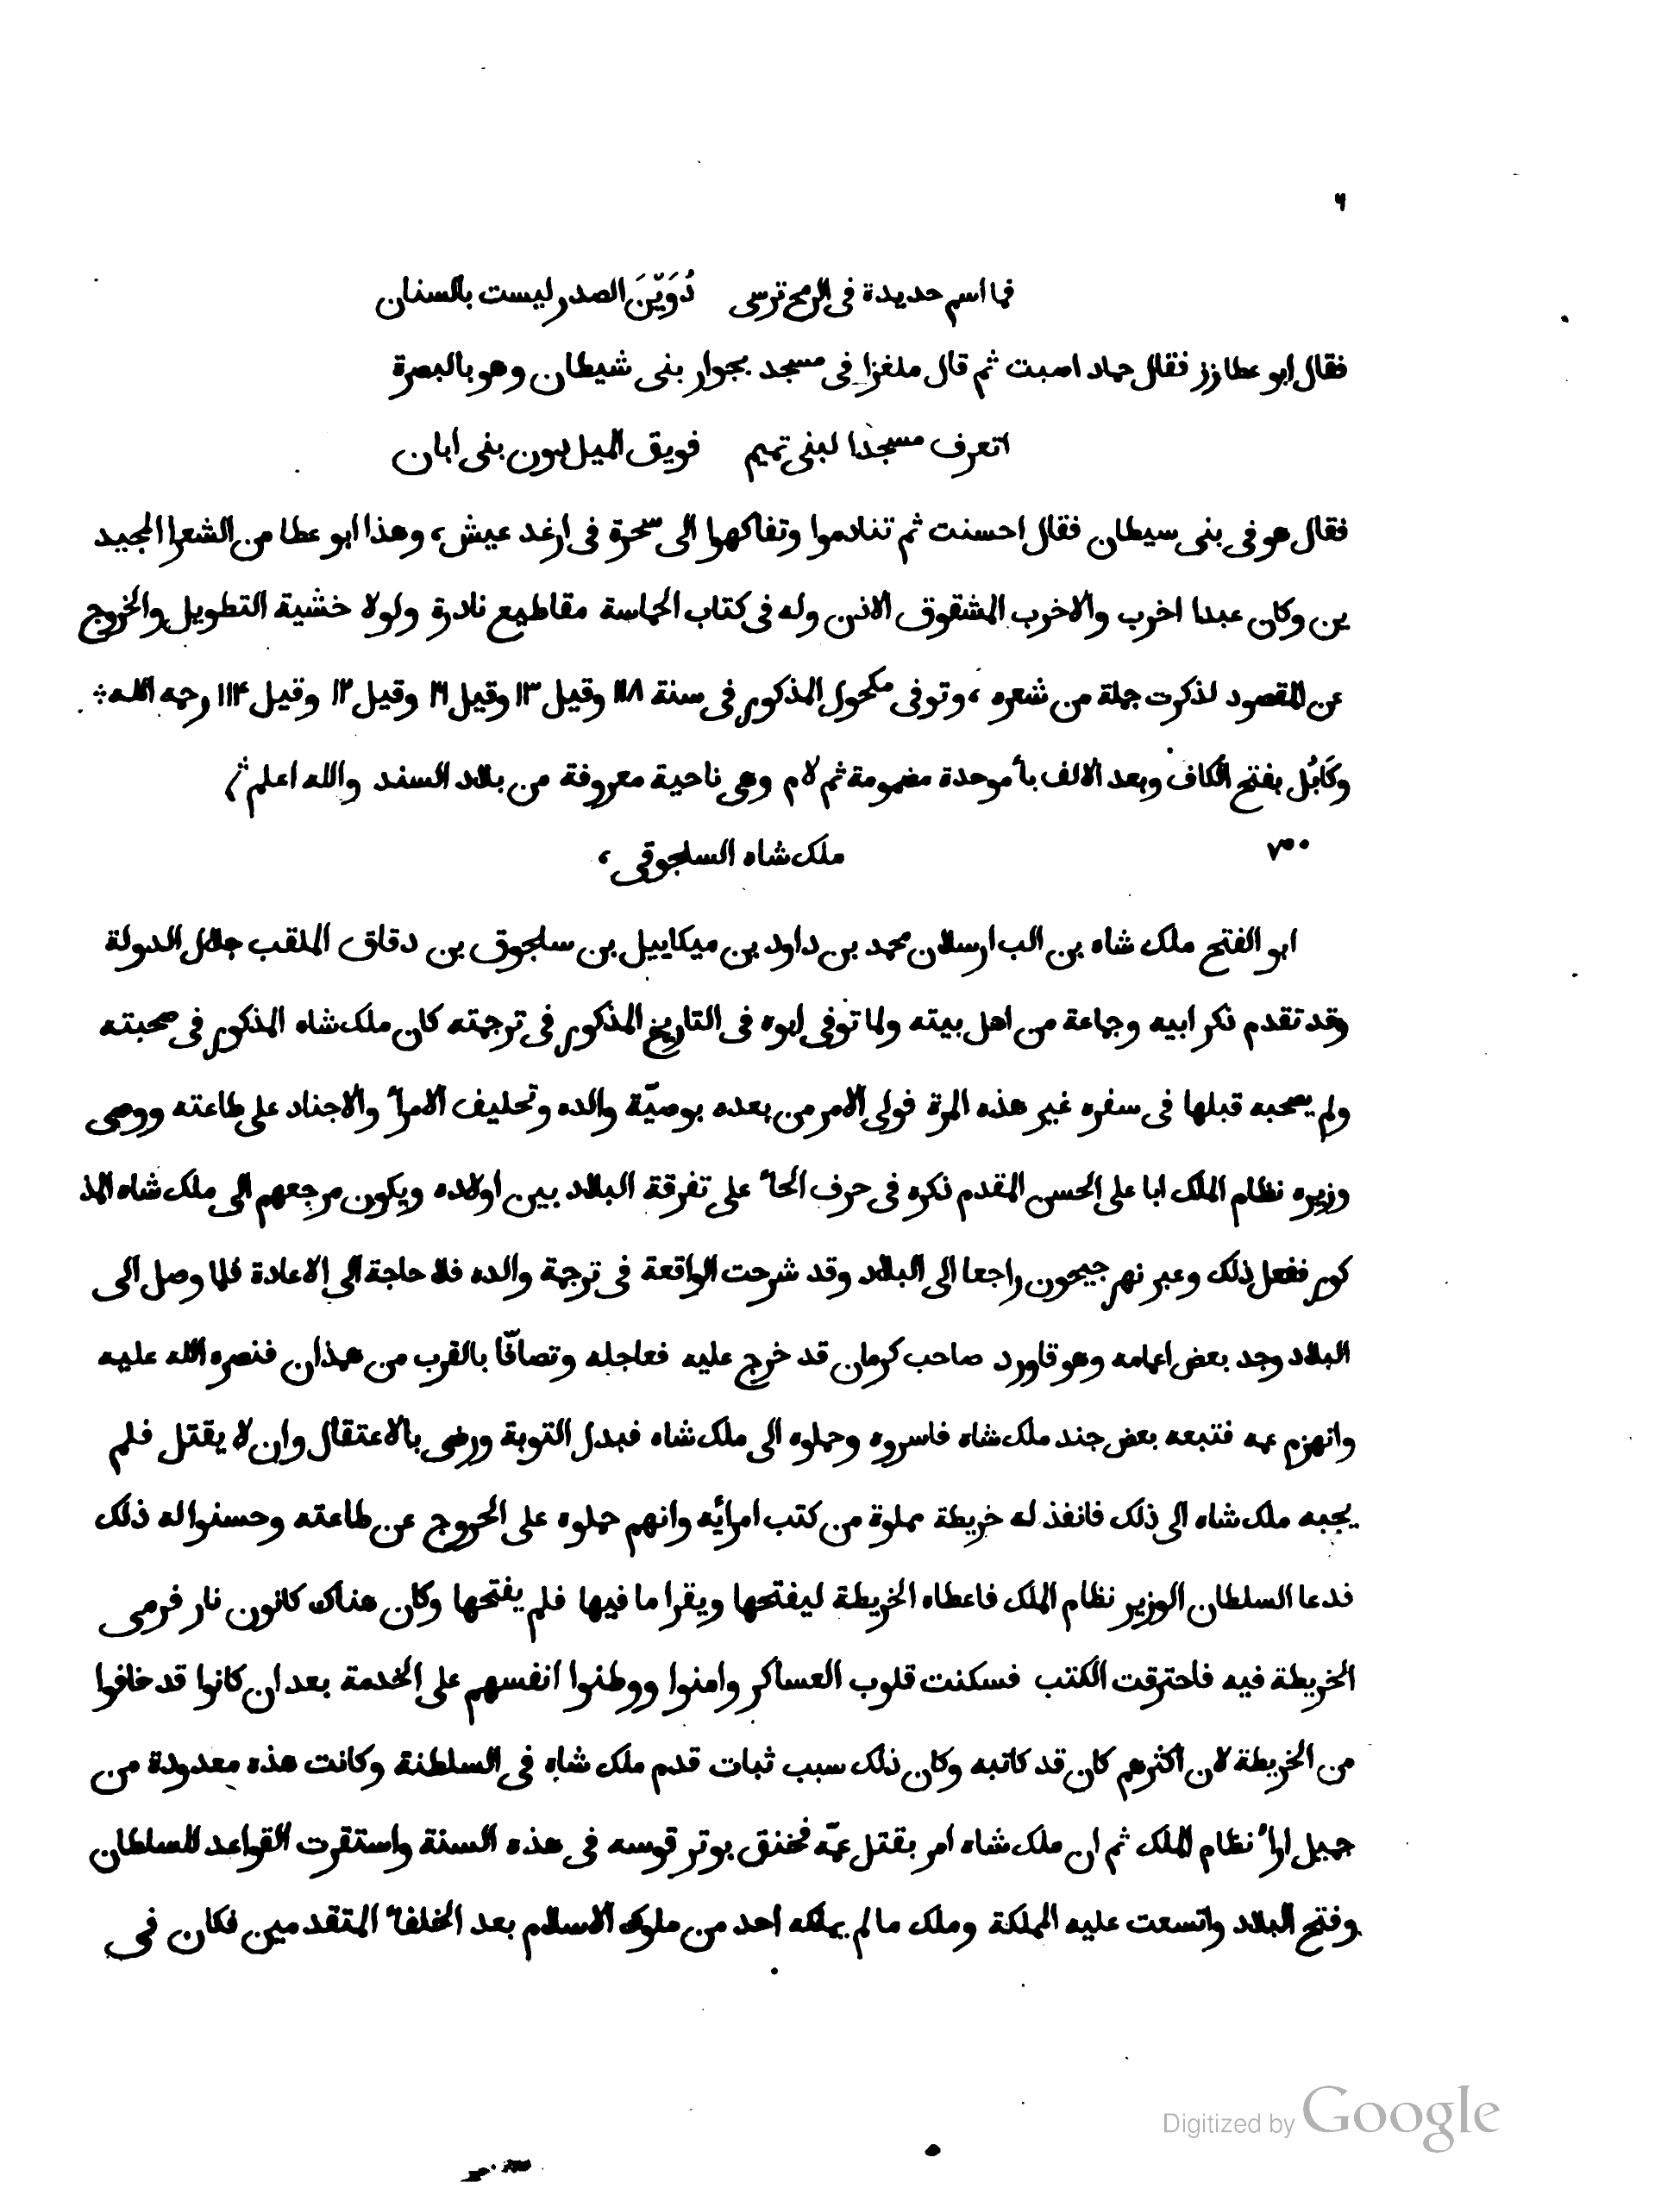 ٦
فما اسم حديدة فى الرمح ترسى دُوَيْنَ الصدر ليست بالسنان
فقال ابو عطا زز فقال حماد اصبت ثم قال ملغزا فى مسجد بجوار بنى شيطان وهو بالبصرة
اتعرف مسجدا لبنى تميم فويق الميل دون بنى ابان
فقال هو فى بنى سيطان فقال احسنت ثم تنادموا وتفاكهوا الى سحرة فى ارغد عيش، وهذا ابو عطا من الشعرا المجيد
ين وكان عبدا اخرب والاخرب المشقوق الاذن وله فى كتاب الحماسة مقاطيع نادرة ولولا خشية التطويل والخروج
عن المقصود لذكرت جملة من شعره، وتوفى مكحول المذكور فى سنة ١١٨ وقيل ١٣ وقيل ١٦ وقيل ١٢ وقيل ١١٤ رحمه الله
وكَابُل بفتح الكاف وبعد الالف بأ موحدة مضمومة ثم لام وهى ناحية معروفة من بلاد السند والله اعلم
٧٥٠
ملك شاه السلجوقى،
ابو الفتح ملك شاه بن الب ارسلان محمد بن داود بن ميكاييل بن سلجوق بن دقاق الملقب جلال الدولة
وقد تقدم ذكر ابيه وجماعة من اهل بيته ولما توفى ابوه فى التاريخ المذكور فى ترجمته كان ملك شاه المذكور فى صحبته
ولم يصحبه قبلها فى سفره غير هذه المرة فولى الامر من بعده بوصيّة والده وتحليف الامرأ والاجناد على طاعته ووصى
وزيره نظام الملك ابا على الحسن المقدم ذكره فى حرف الحأ على تفرقة البلاد بين اولاده ويكون مرجعهم الى ملك شاه المذ
كور ففعل ذلك وعبر نهر جيحون راجعا الى البلاد وقد شرحت الواقعة فى ترجمة والده فلا حاجة الى الاعادة فلما وصل الى
البلاد وجد بعض اعمامه وهو قاورد صاحب كرمان قد خرج عليه فعاجله وتصافّا بالقرب من همذان فنصره الله عليه
وانهزم عمه فتبعه بعض جند ملك شاه فاسروه وحملوه الى ملك شاه فبدل التوبة ورضى بالاعتقال وان لا يقتل فلم
يجبه ملك شاه الى ذلك فانفذ له خريطة مملوة من كتب امرائه وانهم حملوه على الخروج عن طاعته وحسنوا له ذلك
فدعا السلطان الوزير نظام الملك فاعطاه الخريطة ليفتحها ويقرا ما فيها فلم يفتحها وكان هناك كانون نار فرمى
الخريطة فيه فاحترقت الكتب فسكنت قلوب العساكر وامنوا ووطنوا انفسهم على الخدمة بعد ان كانوا قد خافوا
من الخريطة لان اكثرهم كان قد كاتبه وكان ذلك سبب ثبات قدم ملك شاه فى السلطنة وكانت هذه معدودة من
جميل ارأ نظام الملك ثم ان ملك شاه امر بقتل عمّه فخنق بوتر قوسه فى هذه السنة واستقرت القواعد للسلطان
وفتح البلاد واتسعت عليه المملكة وملك ما لم يملكه احد من ملوك الاسلام بعد الخلفأ المتقدمين فكان فى
Digitized by Google